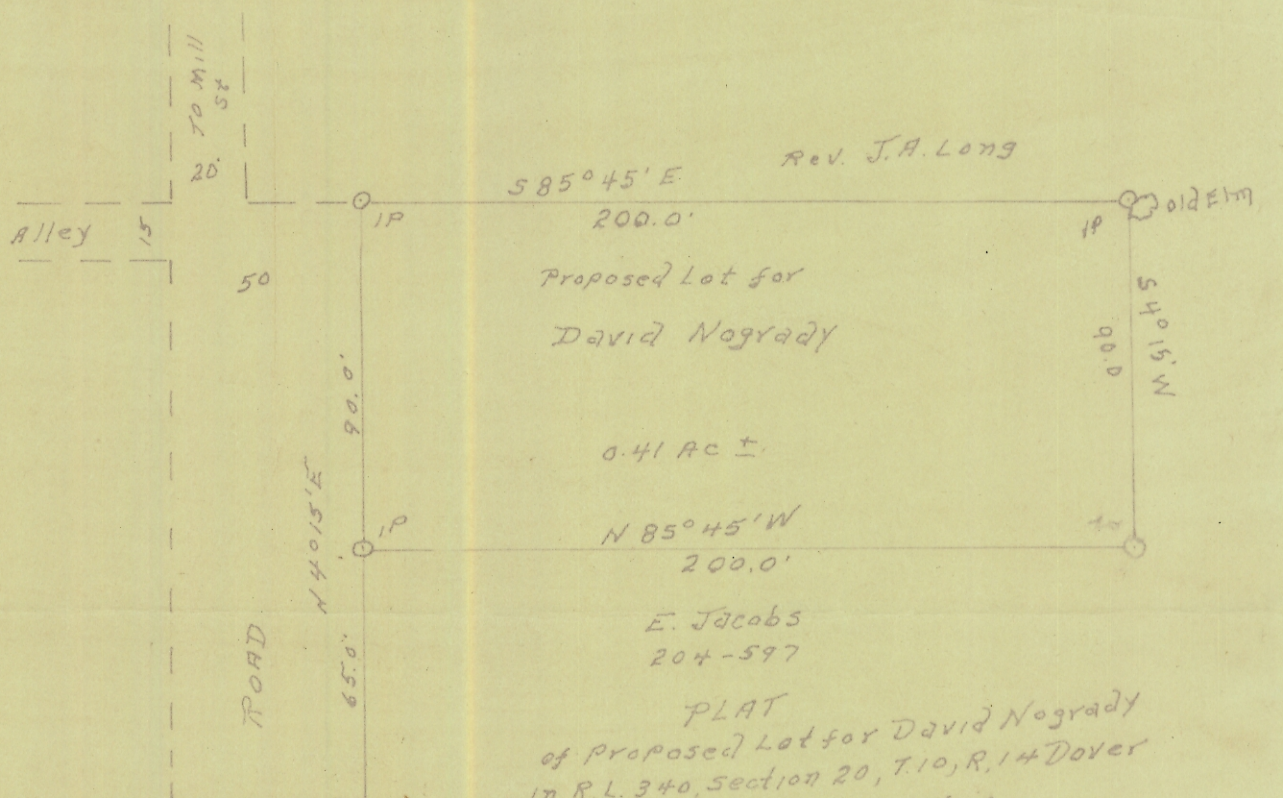 TO Mill
St
20'
Rev. J.A. Long
S 85° 45' E
200.0'
IP
IP
Old Elm
Alley 15
50
Proposed Lot for
David Nogrady
S 4° 15' W
90.0
90.0'
0.41 Ac ±
N 85° 45' W
200.0'
IP
N 4° 15' E
E. Jacobs
204-597
65.0'
ROAD
PLAT
of Proposed Lot for David Nogrady
in R.L. 340, Section 20, T.10, R.14 Dover